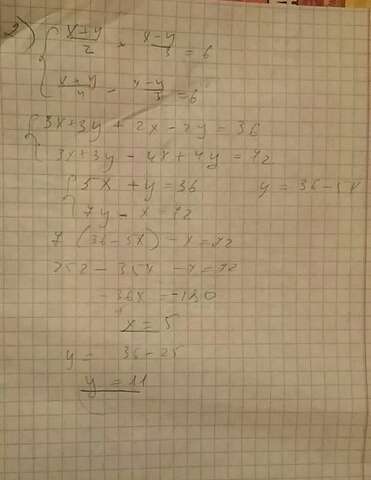 2) { (x+y)/2 + (x-y)/3 = 6
(x+y)/4 - (x-y)/3 = 6
{ 3x+3y + 2x-2y = 36
3x+3y - 4x+4y = 72
{ 5x + y = 36 y = 36-5x
7y - x = 72
7 (36-5x) - x = 72
252 - 35x - x = 72
-36x = -180
x = 5
y = 36-25
y = 11